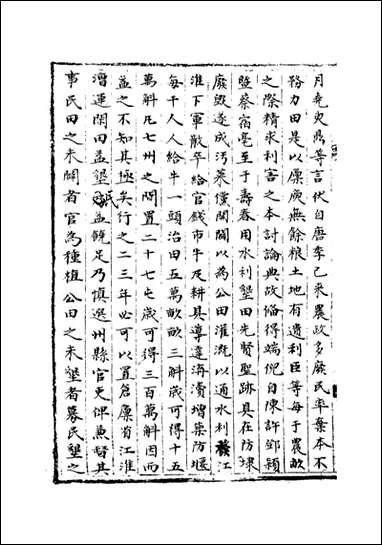 月堯叟鼎等言伏自唐季已來農政多廢民率棄本不
務力田是以廩庾無餘粮土地有遺利臣等每于農畝
之際精求利害之本討論典故俻得端倪自陳許鄧潁
曁蔡宿亳至于壽春用水利墾田先賢聖跡具在防埭
廢毀遂成汚萊儻開闢以為公田灌溉以通水利發江
淮下軍散卒給官錢市牛及耕具導達溝瀆增築防堰
每千人人給牛一頭治田五萬畝畝三斛歲可得十五
萬斛凡七州之間置二十七屯歲可得三百萬斛因而
益之不知其極矣行之二三年必可以置倉廩省江淮
漕運閑田益墾民益饒足乃慎選州縣官吏俾兼督其
事民田之未闢者官為種植公田之未墾者募民墾之